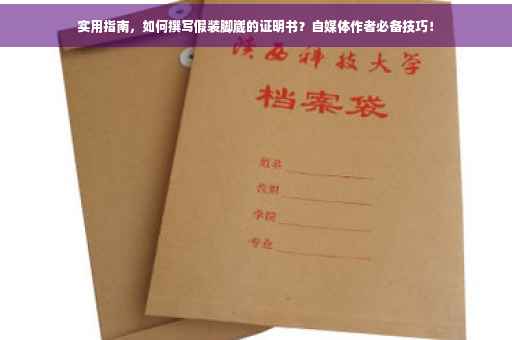 实用指南，如何撰写假装脚崴的证明书？自媒体作者必备技巧！
陕西科技大学
档案袋
姓名
学院
专业